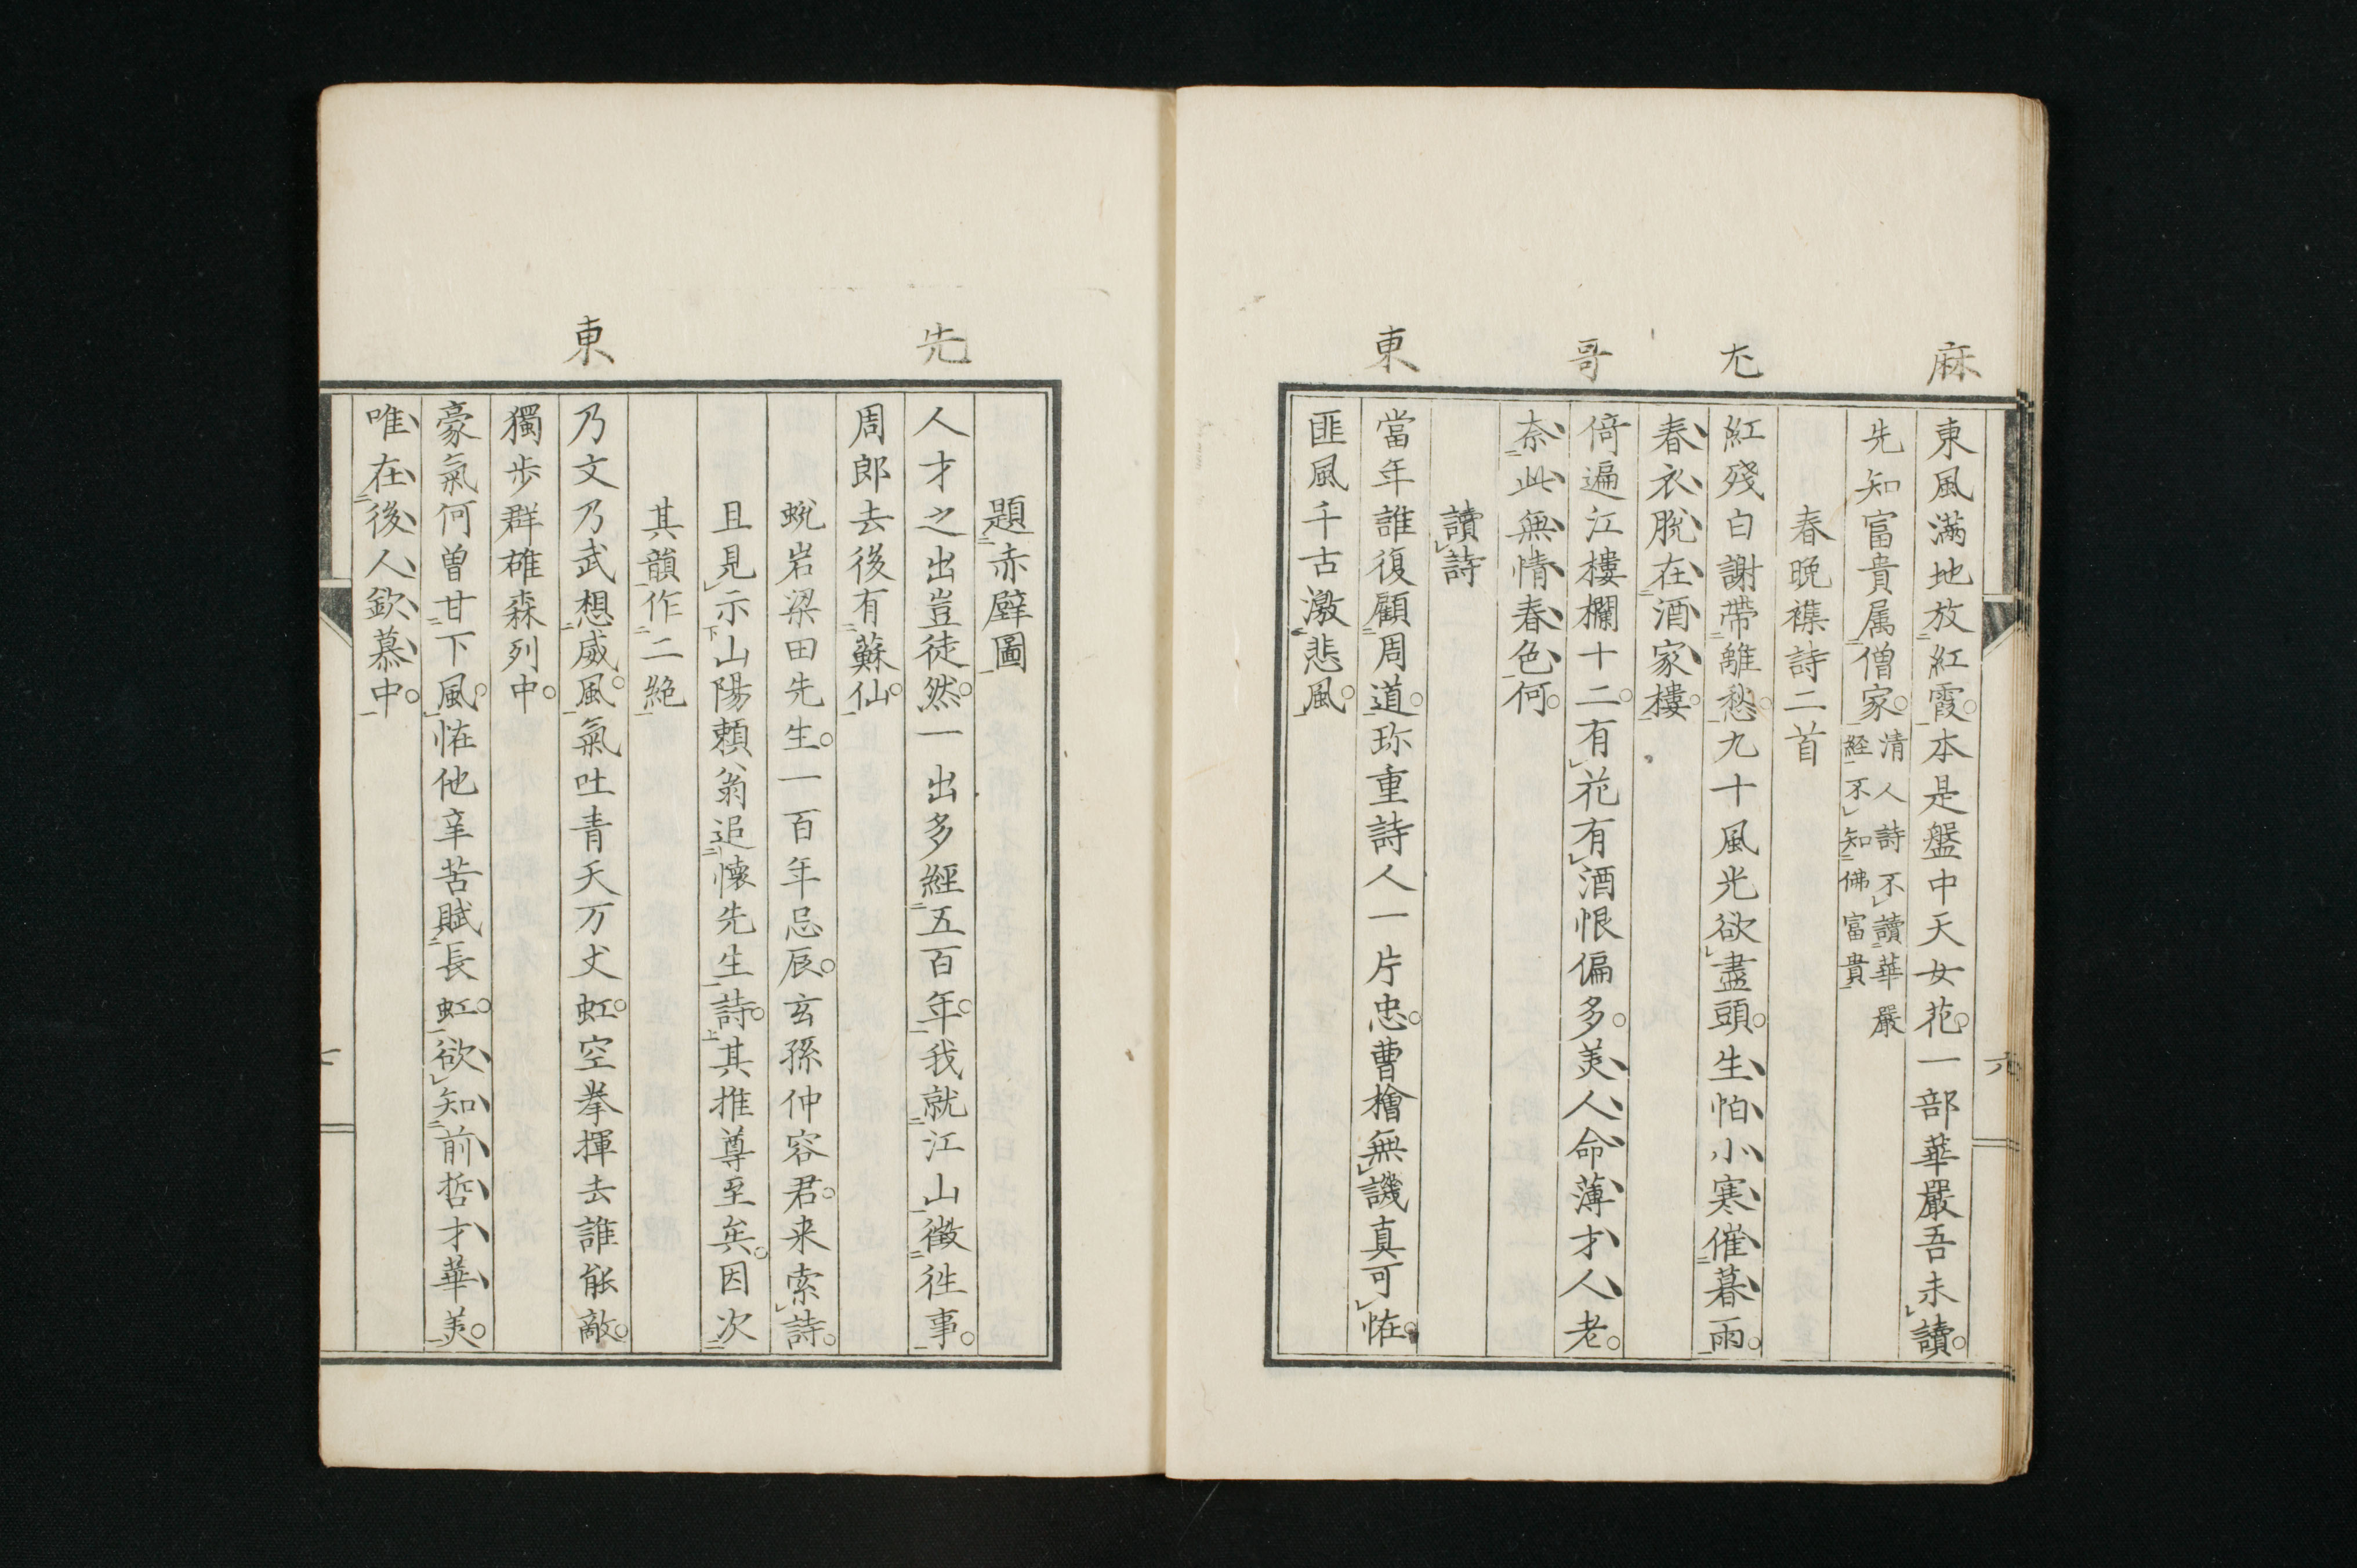 麻
尢
哥
東
東風滿地放紅霞本是盤中天女花一部華嚴吾未讀
先知富貴属僧家清人詩不讀華嚴
経不知佛富貴
春晩襍詩二首
紅殘白謝帶離愁九十風光欲盡頭生怕小寒催暮雨
春衣脫在酒家樓
倚遍江樓欄十二有花有酒恨偏多羙人命薄才人老
奈此無情春色何
讀詩
當年誰復顧周道珎重詩人一片忠曹檜無譏真可恠
匪風千古激悲風
先
東
題赤壁圖
人才之出豈徒然一出多經五百年我就江山徵徃事
周郎去後有蘇仙
蛻岩梁田先生一百年忌辰玄孫仲容君来索詩
且見示山陽賴翁追懷先生詩其推尊至矣因次
其韻作二絶
乃文乃武想威風氣吐青天万丈虹空拳揮去誰能敵
獨步群雄森列中
豪氣何曽甘下風恠他辛苦賦長虹欲知前哲才華羙
唯在後人欽慕中